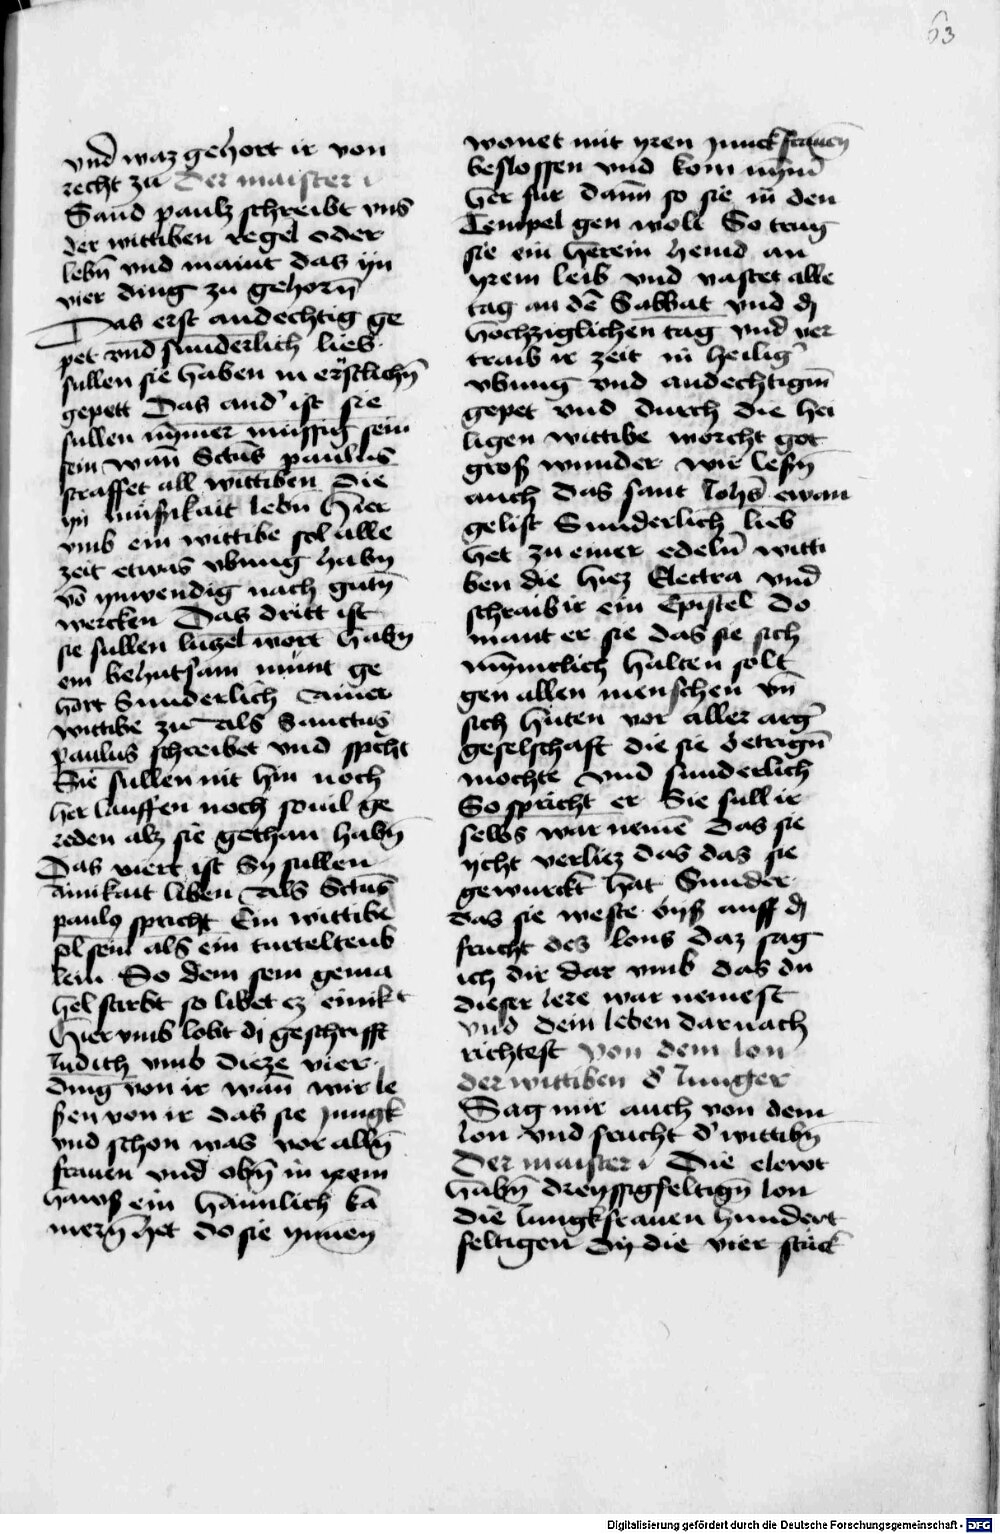 63
vnd waz gehort ir von
recht zu Der maister
Sand paulz schreibt vns
der wittiben regel oder
lebn̄ vnd maint das yn
vier ding zu gehorn̄
Das erst andechtig ge
pet vnd sunderlich lieb
sullen sie haben in erstlichn̄
gepett Das and' ist sie
sullen nȳmer mussig sein
sein wan̄ Sctūs paulus
straffet all wittiben die
yn mussikait lebn̄ Hier
vmb ein wittibe sol alle
zeit etwas vbung habn̄
vō ynwendig nach gutn̄
wercken Das dritt ist
sie sullen luczel wort habn̄
ein behutsam munt ge
hort Sunderlich ainer
wittibe zu Als Sanctus
paulus schreibet vnd spricht
Sie sullen nit hin noch
her lauffen noch souil ge
reden alz sie gethan habn̄
Das viert ist Sy sullen
ainikait liben Als Sctūs
paulus spricht Ein wittibe
sol sein als ein turtelteub
lein So dem sein gema
hel stirbt so libet ez einikt
Hier vmb lobt dj geschrifft
Judith vmb dieze vier
ding von ir wan̄ wir le
sen von ir das sie Jungk
vnd schon was vor alln̄
frauen vnd obn̄ in irem
hawß ein haimlich ka
mern̄ het do sie ynnen̄
wonet mit yren junckfrauen̄
beslossen vnd kom nym̄
her fur dann so sie in den
Tempel gen wolt So trug
sie ein herein hemd an
yrem leib vnd vastet alle
tag an dē Sabbat vnd dj
hochzeiglichen tag vnd ver
traib ir zeit in heilig'
vbung vnd andechtigm̄
gepet vnd durch die hei
ligen wittibe worcht got
groß wunder wir lesn̄
auch das sant Johs̄ ewan
gelist Sunderlich lieb
het zu einer edeln̄ witti
ben die hiez Electra vnd
schraib ir ein Epistel Do
mant er sie das sie sich
mynniclich halten solt
gen allen menschen vn̄
sich huten vor aller arg'
geselschaft die sie betrign̄
mochte vnd sunderlich
So spricht er Sie sull ir
selbs war nemē das sie
ycht verliez das das sie
gewurckt hat Sunder
das sie weste byß auff dj
frucht dez lons daz sag
ich dir dar vmb das du
dieser lere war nemest
vnd dein leben darnach
richtest Von dem lon
der wittiben d' Junger
Sag mir auch von dem
lon vnd frucht d' wittibn̄
Der maister Die elewt
habn̄ dreyssigfeltign̄ lon
die Jungkfrauen hundert
feltigen dy die vier stuck
Digitalisierung gefördert durch die Deutsche Forschungsgemeinschaft - DFG